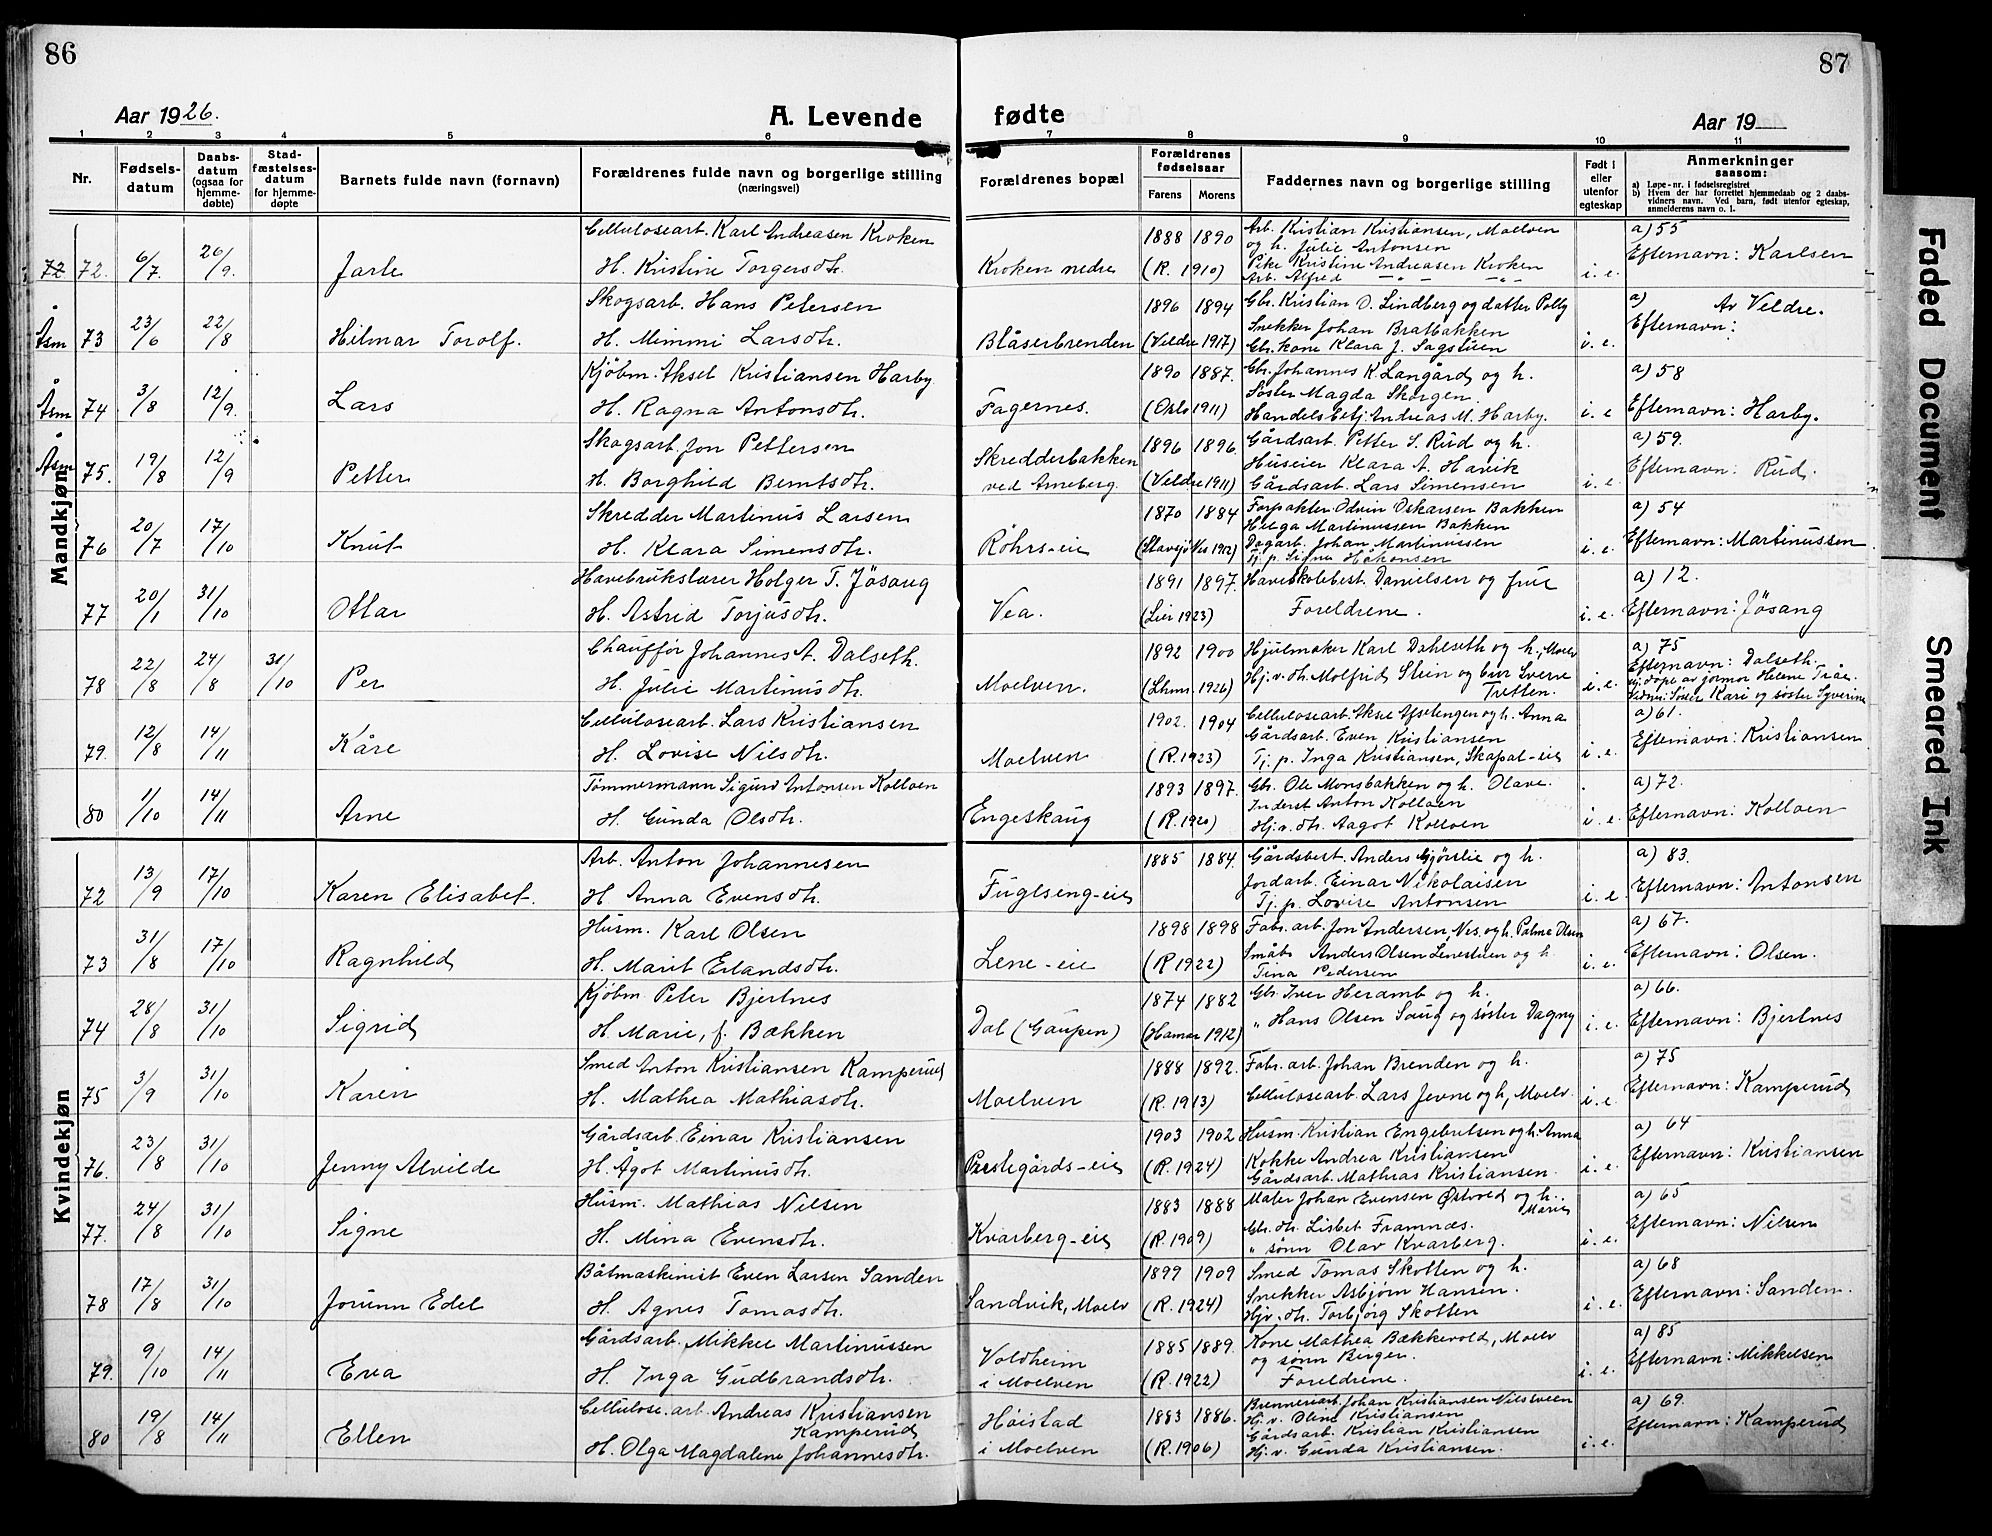 86
87
Aar 1926.
A. Levende fødte
Aar 19
1 2 3 4 5 6 7 8 9 10 11
Nr.
Fødsels-
datum
Daabs-
datum
(ogsaa for
hjemme-
døbte)
Stad-
fæstelses-
datum
for hjemme-
døpte
Barnets fulde navn (fornavn)
Forældrenes fulde navn og borgerlige stilling
(næringsvei)
Forældrenes bopæl
Forældrenes
fødselsaar
Farens Morens
Faddernes navn og borgerlige stilling
Født i
eller
utenfor
egteskap
Anmerkninger
saasom:
a) Løpe-nr. i fødselsregistret
b) Hvem der har forrettet hjemmedaab og 2 daabs-
vidners navn. Ved barn, født utenfor egteskap,
anmelderens navn o. l.
Mandkjøn
72 72. 6/7. 26/9. Jarle
Cellulosearb. Karl Andreasen Kroken
H. Kristine Torgersdtr.
Kroken nedre
1888 1890
(R. 1910)
Arb. Kristian Kristiansen, Moelven
og h. Julie Antonsen
Pike Kristine Andreasen Kroken
Arb. Alfred —"— —"—
i. e.
a) 55
Efternavn: Karlsen
Åsm 73 23/6 22/8 Hilmar Torolf.
Skogsarb. Hans Petersen
H. Mimmi Larsdtr.
Blåserbrenden
1896 1894
(Veldre 1917)
Gbr. Kristian O. Lindberg og datter Polly
Snekker Johan Bratbakken
Gbr. kone Klara J. Sagstuen
i. e.
a) Av Veldre.
Efternavn:
Åsm 74 3/8 12/9. Lars
Kjøbm. Aksel Kristiansen Harby
H. Ragna Antonsdtr.
Fagernes.
1890 1887.
(Oslo 1911)
Gbr. Johannes K. Langård og h.
Søster Magda Skorgen
Handelsbetj Andreas M. Harby.
i. e
a) 58
Efternavn: Harby.
Åsm 75. 19/8 12/9 Petter
Skogsarb. Jon Pettersen
H. Borghild Berntsdtr.
Skredderbakken
ved Arneberg.
1896 1896.
(Veldre 1911)
Gårdsarb. Petter S. Rud og h.
Huseier Klara A. Havik
Gårdsarb. Lars Simensen
i. e.
a) 59.
Efternavn: Rud.
76 20/7 17/10 Knut
Skredder Martinus Larsen
H. Klara Simensdtr.
Röhrs-eie
1870 1884
1912)
Forpakter Odvin Oskarsen Bakken
Helga Martinussen Bakken
Dagarb. Johan Martinussen
Tj. p. Signe Håkonsen
i. e.
a) 54
Efternavn: Martinussen
77 20/1 31/10 Ottar
Havebrukslærer Holger T. Jösang
H. Astrid Torjusdtr.
Vea.
1891 1897.
(Lier 1923)
Haveskolebest. Danielsen og frue
Foreldrene.
i. e.
a) 12.
Efternavn: Jösang
78 22/8 24/8 31/10 Per
Chauffør Johannes A. Dalseth.
H. Julie Martinusdtr.
Moelven.
1892 1900
(Lhmr. 1926)
Hjulmaker Karl Dahlseth og h., Moelv
Hj. v. dtr. Molfrid Stein og bror Sverre
Tretten.
i. e.
a) 75
Efternavn: Dalseth.
Hj. døpt av jormor Helene Tråe.
Vidner: Søster Kari og søster Syverine
79. 12/8 14/11 Kåre
Celluloseab. Lars Kristiansen
H. Lovise Nilsdtr.
Moelven
1902. 1904
(R. 1923)
Celluloseab. Aksel Efsetengen og h. Anna
Gårdsarb. Even Kristiansen
Tj. p. Inga Kristiansen, Skapal-eie
i. e.
a) 61.
Efternavn: Kristiansen
80 1/10 14/11 Arne
Tømmermann Sigurd Antonsen Kolloen
H. Gunda Olsdtr.
Engeskaug
1893 1897.
(R. 1920)
Gbr. Ole Monsbakken og h. Olave.
Inderst Anton Kolloen
Hj. v. dtr. Aagot Kolloen
i. e.
a) 72.
Efternavn: Kolloen
Kvindekjøn
72 13/9 17/10 Karen Elisabet.
Arb. Anton Johannesen
H Anna Evensdtr.
Fuglseng-eie
1885 1884.
Gårdsbest. Anders Gjørslie og h.
Jordarb. Einar Nikolaisen
Tj. p. Lovise Antonsen
i. e.
a) 83.
Efternavn: Antonsen
73 31/8 17/10 Ragnhild
Husm. Karl Olsen
H. Marit Erlandsdtr.
Lene-eie
1898 1898
(R 1922)
Fabr. arb. Jon Andersen, Nes. og h. Palma Olsen
Småbr. Anders Olsen Lenestuen og h.
Tina Pedersen
i. e.
a) 67.
Efternavn: Olsen.
74 28/8 31/10 Sigrid
Kjøbm. Peter Bjertnes
H. Marie, f. Bækken
Dal (Gaupen)
1874 1882
(Hamar 1912)
Gbr. Iver Heramb og h.
" Hans Olsen Saug og søster Dagny
i. e.
a) 66.
Efternavn: Bjertnes
75 3/9 31/10 Karen
Smed Anton Kristiansen Kamperud
H. Mathea Mathiasdtr.
Moelven
1888 1892.
(R. 1913)
Fabr. arb. Johan Brenden og h.
Celluloseab. Lars Jevne og h, Moelv.
i. e.
a) 75
Efternavn: Kamperud
76. 23/8 31/10 Jenny Alvilde
Gårdsarb. Einar Kristiansen
H. Ågot Martinusdtr.
Prestegårds-eie
1903 1902
(R. 1924)
Husm. Kristian Engebretsen og h. Anna
Kokke Andrea Kristiansen
Gårdsarb. Mathias Kristiansen.
i. e.
a) 64
Efternavn: Kristiansen
77. 24/8 31/10 Signe
Husm. Mathias Nilsen
H. Mina Evensdtr.
Kvarberg-eie
1883 1888
(R. 1909)
Maler Johan Evensen Østvold og h.
Marie
Gbr. dtr. Lisbet Framnæs.
" sønn Olav Kvarberg.
i. e.
a) 65
Efternavn: Nilsen
78 17/8 31/10 Jorunn Edel
Båtmaskinist Even Larsen Sanden
H. Agnes Tomasdtr.
Sandvik, Moelv
1899 1909
(R. 1924)
Smed Tomas Skotten og h.
Snekker Asbjørn Hansen.
Hjv. dtr. Torbjørg Skotten
i. e.
a) 68
Efternavn: Sanden.
79. 9/10 14/11 Eva
Gårdsarb. Mikkel Martinussen
H. Inga Gudbrandsdtr.
Voldheim
i Moelven
1885 1889.
(R. 1922)
Kone Mathea Bækkevold, Moelv
og sønn Birger.
Foreldrene.
i. e.
a) 85
Efternavn: Mikkelsen
80 19/8 14/11 Ellen
Cellulose. arb. Andreas Kristiansen
Kamperud
H. Olga Magdalene Johannesdtr.
Høistad
i Moelven
1883 1886.
(R. 1906)
Brenneriarb. Johan Kristiansen Nilsveen
Hj. v. Oline Kristiansen
Gårdsarb. Kristian Kristiansen
Hj. v. Gunda Kristiansen.
i. e.
a) 69.
Efternavn: Kamperud
Faded Document
Smeared Ink